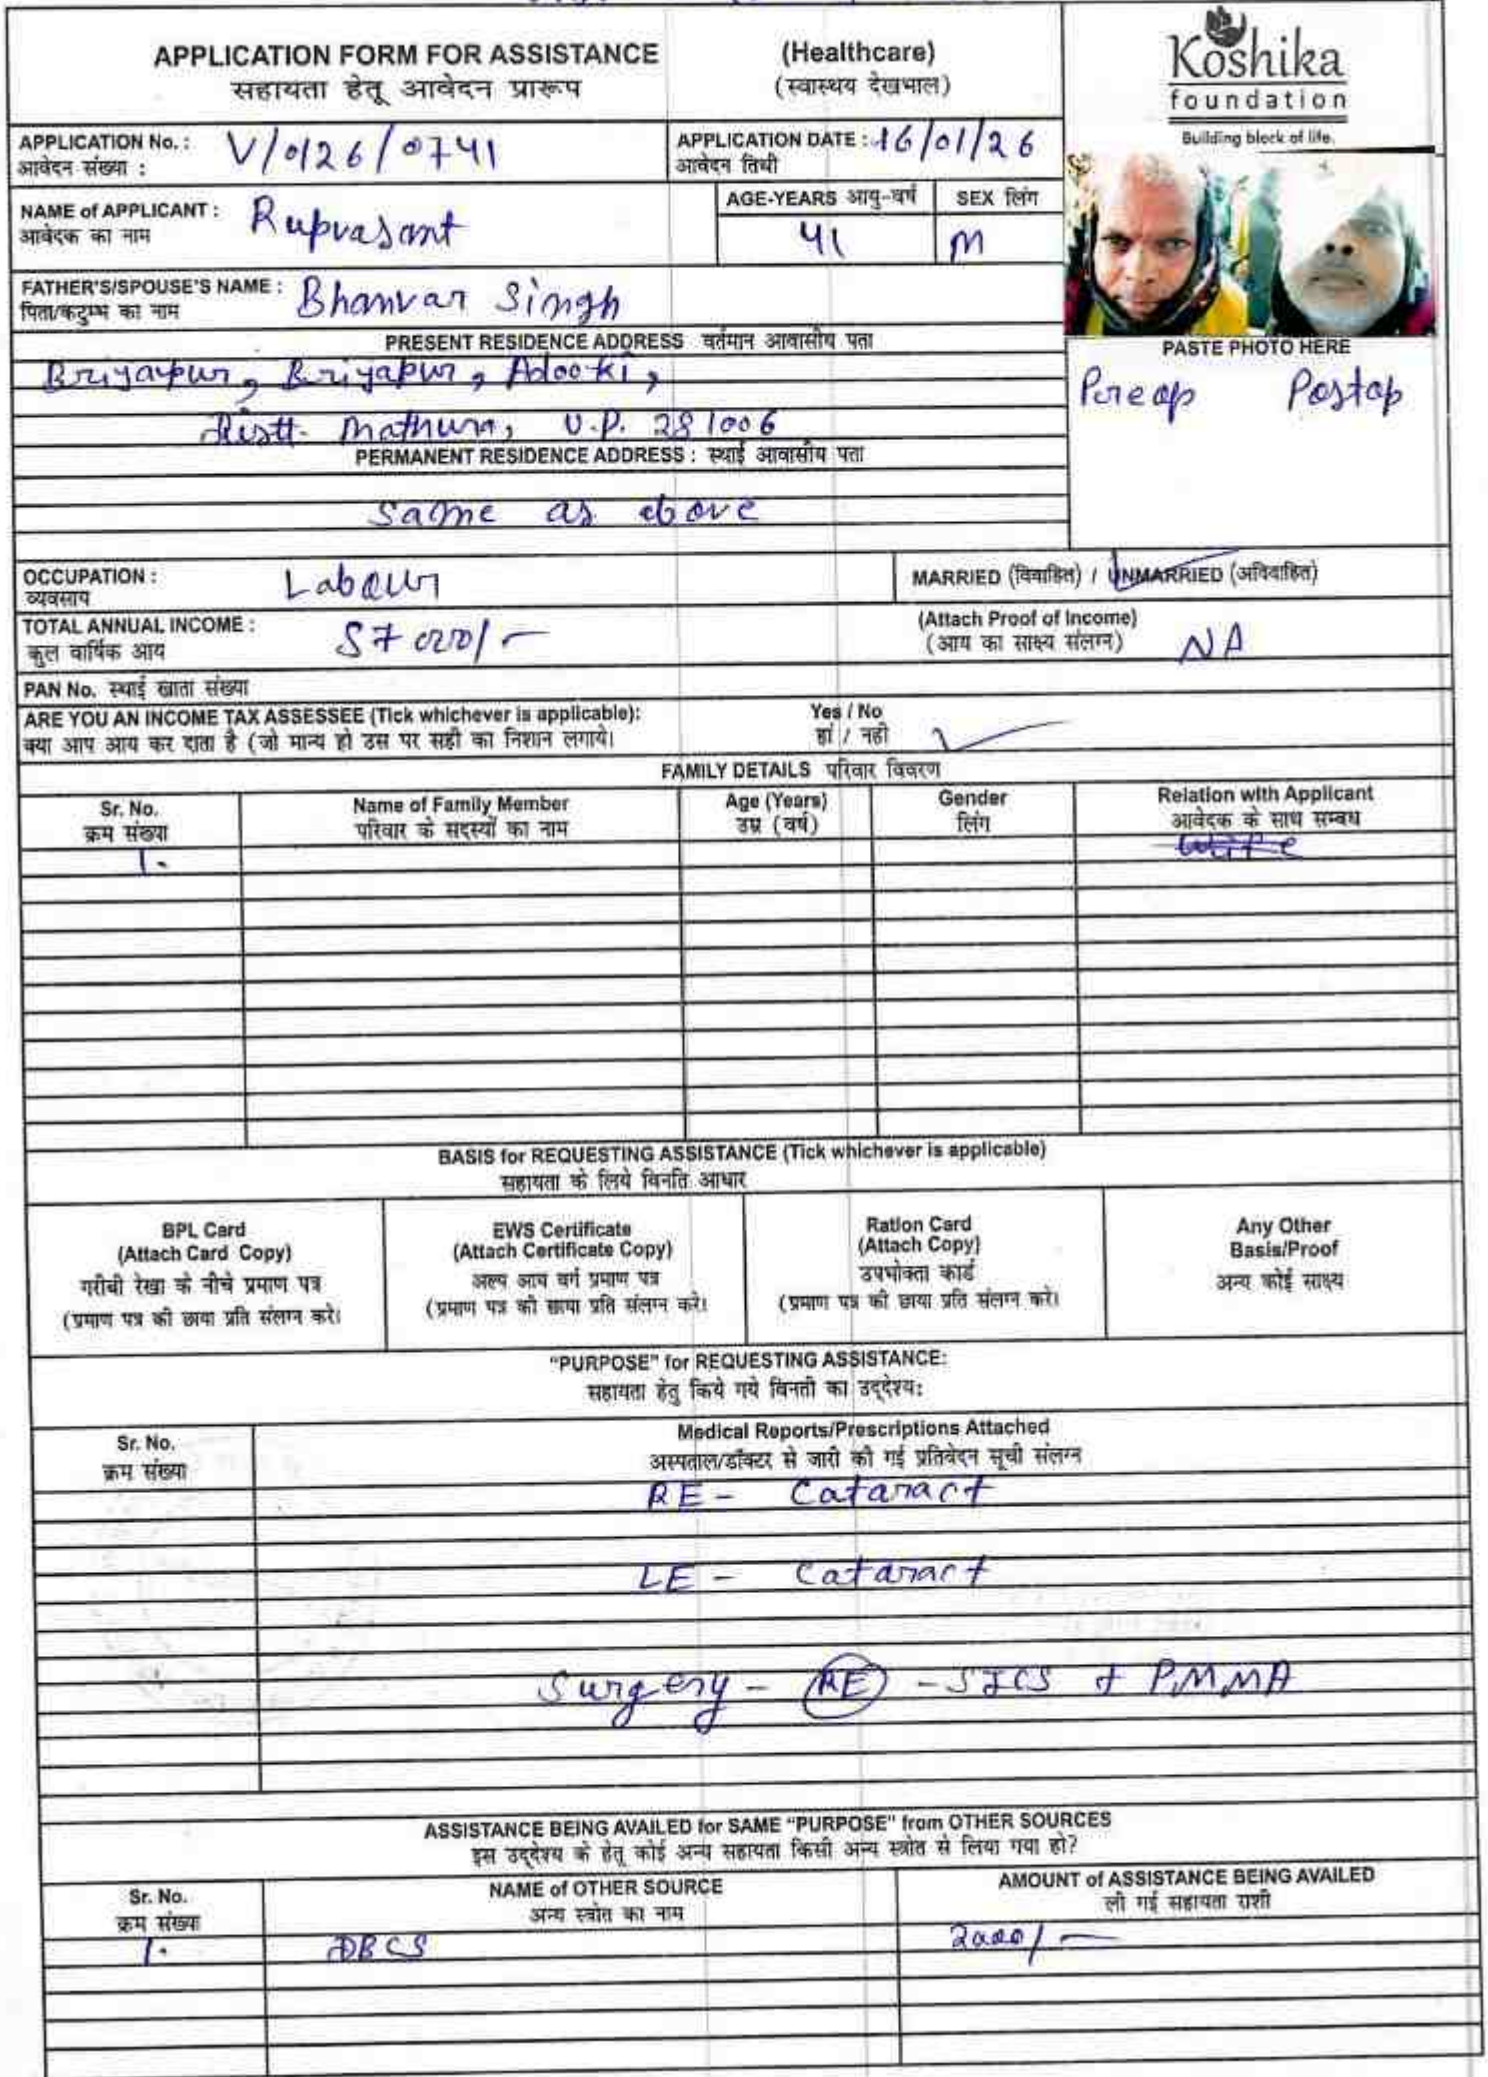 APPLICATION FORM FOR ASSISTANCE
सहायता हेतू आवेदन प्रारूप
(Healthcare)
(स्वास्थय देखभाल)
Koshika
foundation
Building block of life.
APPLICATION No. :
आवेदन संख्या :
V/0126/0741
APPLICATION DATE : 16/01/26
आवेदन तिथी
NAME of APPLICANT :
आवेदक का नाम
Rupvasant
AGE-YEARS आयु-वर्ष
41
SEX लिंग
M
FATHER'S/SPOUSE'S NAME :
पिता/कटुम्भ का नाम
Bhanvar Singh
PRESENT RESIDENCE ADDRESS वर्तमान आवासीय पता
Briyapur, Briyapur, Adooki,
Distt- Mathura, U.P. 281006
PERMANENT RESIDENCE ADDRESS : स्थाई आवासीय पता
Same as above
PASTE PHOTO HERE
Preop Postop
OCCUPATION :
व्यवसाय
Labour
MARRIED (विवाहित) / UNMARRIED (अविवाहित)
TOTAL ANNUAL INCOME :
कुल वार्षिक आय
57000/-
(Attach Proof of Income)
(आय का साक्ष्य संलग्न)
NA
PAN No. स्थाई खाता संख्या
ARE YOU AN INCOME TAX ASSESSEE (Tick whichever is applicable):
क्या आप आय कर दाता है (जो मान्य हो उस पर सही का निशान लगाये।
Yes / No
हां / नही
FAMILY DETAILS परिवार विवरण
Sr. No.
क्रम संख्या
Name of Family Member
परिवार के सदस्यों का नाम
Age (Years)
उम्र (वर्ष)
Gender
लिंग
Relation with Applicant
आवेदक के साथ सम्बध
1.
BASIS for REQUESTING ASSISTANCE (Tick whichever is applicable)
सहायता के लिये विनति आधार
BPL Card
(Attach Card Copy)
गरीबी रेखा के नीचे प्रमाण पत्र
(प्रमाण पत्र की छाया प्रति संलग्न करे।
EWS Certificate
(Attach Certificate Copy)
अल्प आय वर्ग प्रमाण पत्र
(प्रमाण पत्र की छाया प्रति संलग्न करे।
Ration Card
(Attach Copy)
उपभोक्ता कार्ड
(प्रमाण पत्र की छाया प्रति संलग्न करे।
Any Other
Basis/Proof
अन्य कोई साक्ष्य
"PURPOSE" for REQUESTING ASSISTANCE:
सहायता हेतु किये गये विनती का उद्देश्य:
Sr. No.
क्रम संख्या
Medical Reports/Prescriptions Attached
अस्पताल/डॉक्टर से जारी की गई प्रतिवेदन सूची संलग्न
RE - Cataract
LE - Cataract
Surgery - RE - SICS + PMMA
ASSISTANCE BEING AVAILED for SAME "PURPOSE" from OTHER SOURCES
इस उद्देश्य के हेतू कोई अन्य सहायता किसी अन्य स्त्रोत से लिया गया हो?
Sr. No.
क्रम संख्या
NAME of OTHER SOURCE
अन्य स्त्रोत का नाम
AMOUNT of ASSISTANCE BEING AVAILED
ली गई सहायता राशी
1.
DBCS
2000/-